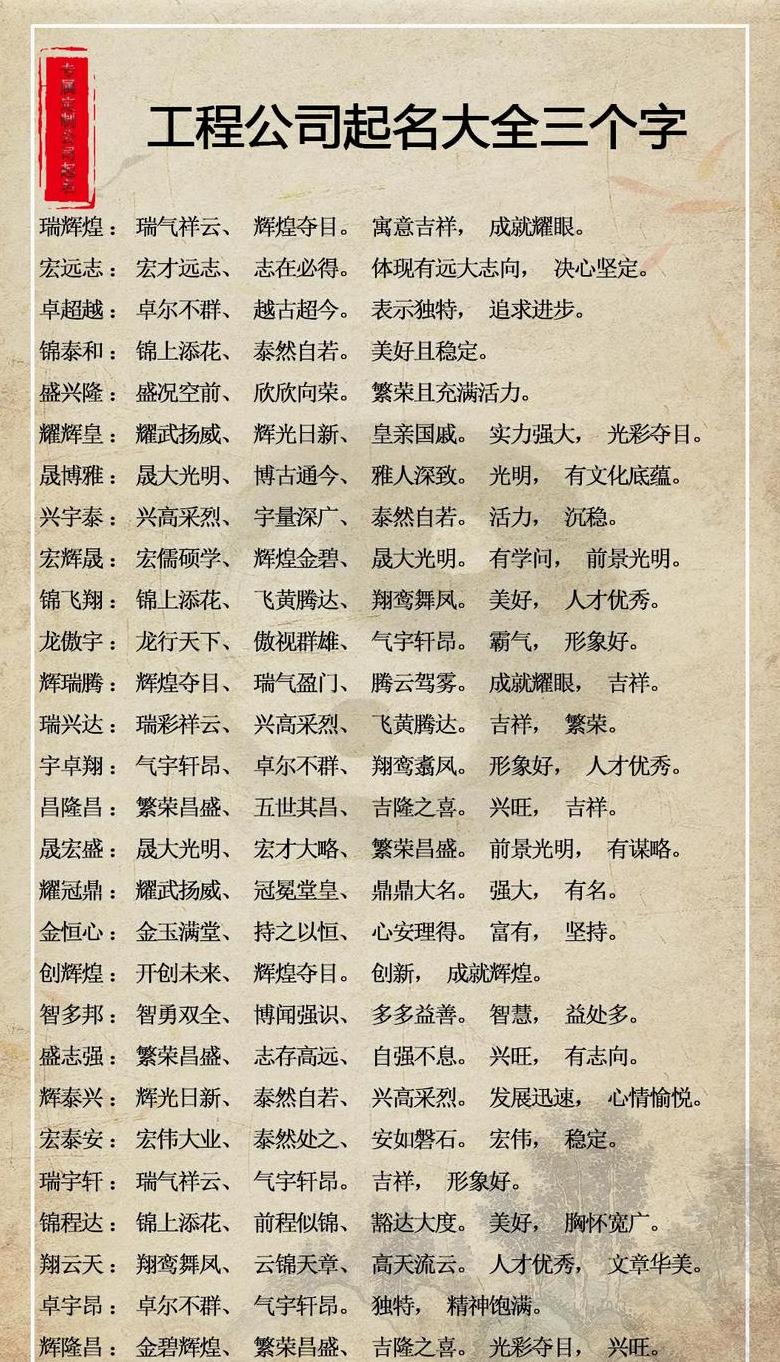 工程公司起名大全三个字
瑞辉煌： 瑞气祥云、 辉煌夺目。 寓意吉祥， 成就耀眼。
宏远志： 宏才远志、 志在必得。 体现有远大志向， 决心坚定。
卓超越： 卓尔不群、 越古超今。 表示独特， 追求进步。
锦泰和： 锦上添花、 泰然自若。 美好且稳定。
盛兴隆： 盛况空前、 欣欣向荣。 繁荣且充满活力。
耀辉皇： 耀武扬威、 辉光日新、 皇亲国戚。 实力强大， 光彩夺目。
晟博雅： 晟大光明、 博古通今、 雅人深致。 光明， 有文化底蕴。
兴宇泰： 兴高采烈、 宇量深广、 泰然自若。 活力， 沉稳。
宏辉晟： 宏儒硕学、 辉煌金碧、 晟大光明。 有学问， 前景光明。
锦飞翔： 锦上添花、 飞黄腾达、 翔鸾舞凤。 美好， 人才优秀。
龙傲宇： 龙行天下、 傲视群雄、 气宇轩昂。 霸气， 形象好。
辉瑞腾： 辉煌夺目、 瑞气盈门、 腾云驾雾。 成就耀眼， 吉祥。
瑞兴达： 瑞彩祥云、 兴高采烈、 飞黄腾达。 吉祥， 繁荣。
宇卓翔： 气宇轩昂、 卓尔不群、 翔鸾翥凤。 形象好， 人才优秀。
昌隆昌： 繁荣昌盛、 五世其昌、 吉隆之喜。 兴旺， 吉祥。
晟宏盛： 晟大光明、 宏才大略、 繁荣昌盛。 前景光明， 有谋略。
耀冠鼎： 耀武扬威、 冠冕堂皇、 鼎鼎大名。 强大， 有名。
金恒心： 金玉满堂、 持之以恒、 心安理得。 富有， 坚持。
创辉煌： 开创未来、 辉煌夺目。 创新， 成就辉煌。
智多邦： 智勇双全、 博闻强识、 多多益善。 智慧， 益处多。
盛志强： 繁荣昌盛、 志存高远、 自强不息。 兴旺， 有志向。
辉泰兴： 辉光日新、 泰然自若、 兴高采烈。 发展迅速， 心情愉悦。
宏泰安： 宏伟大业、 泰然处之、 安如磐石。 宏伟， 稳定。
瑞宇轩： 瑞气祥云、 气宇轩昂。 吉祥， 形象好。
锦程达： 锦上添花、 前程似锦、 豁达大度。 美好， 胸怀宽广。
翔云天： 翔鸾舞凤、 云锦天章、 高天流云。 人才优秀， 文章华美。
卓宇昂： 卓尔不群、 气宇轩昂。 独特， 精神饱满。
辉隆昌： 金碧辉煌、 繁荣昌盛、 吉隆之喜。 光彩夺目， 兴旺。